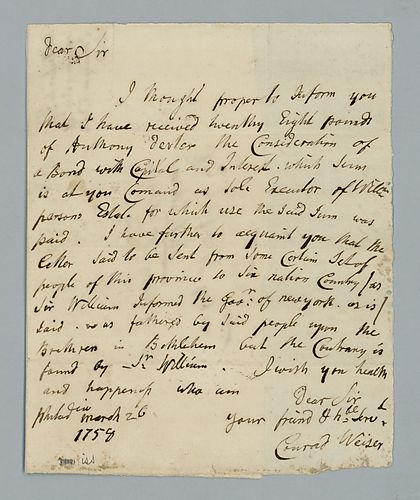 Dear Sir
I thought proper to Inform you
that I have received twenthy Eight pounds
of Anthony Dexter the Consideration of
a Bond with Capital and Interest. which Sum
is at you Comand as Sole Executor of
persons Estat. for which use the said Sum was
paid. I have further to acquaint you that the
letter said to be Sent from Some Certain Set of
people of this province to Six nation Country / as
Sir William Informed the Govr. of newyork. as is /
said. was fathered by said people upon the
Brethren in Bethlehem but the Contrary is
found by Sr. William. I wish you health
and happeness who am
Dear Sir
Philad in march 26
your friend & hble Servt.
1759
Conrad Weiser